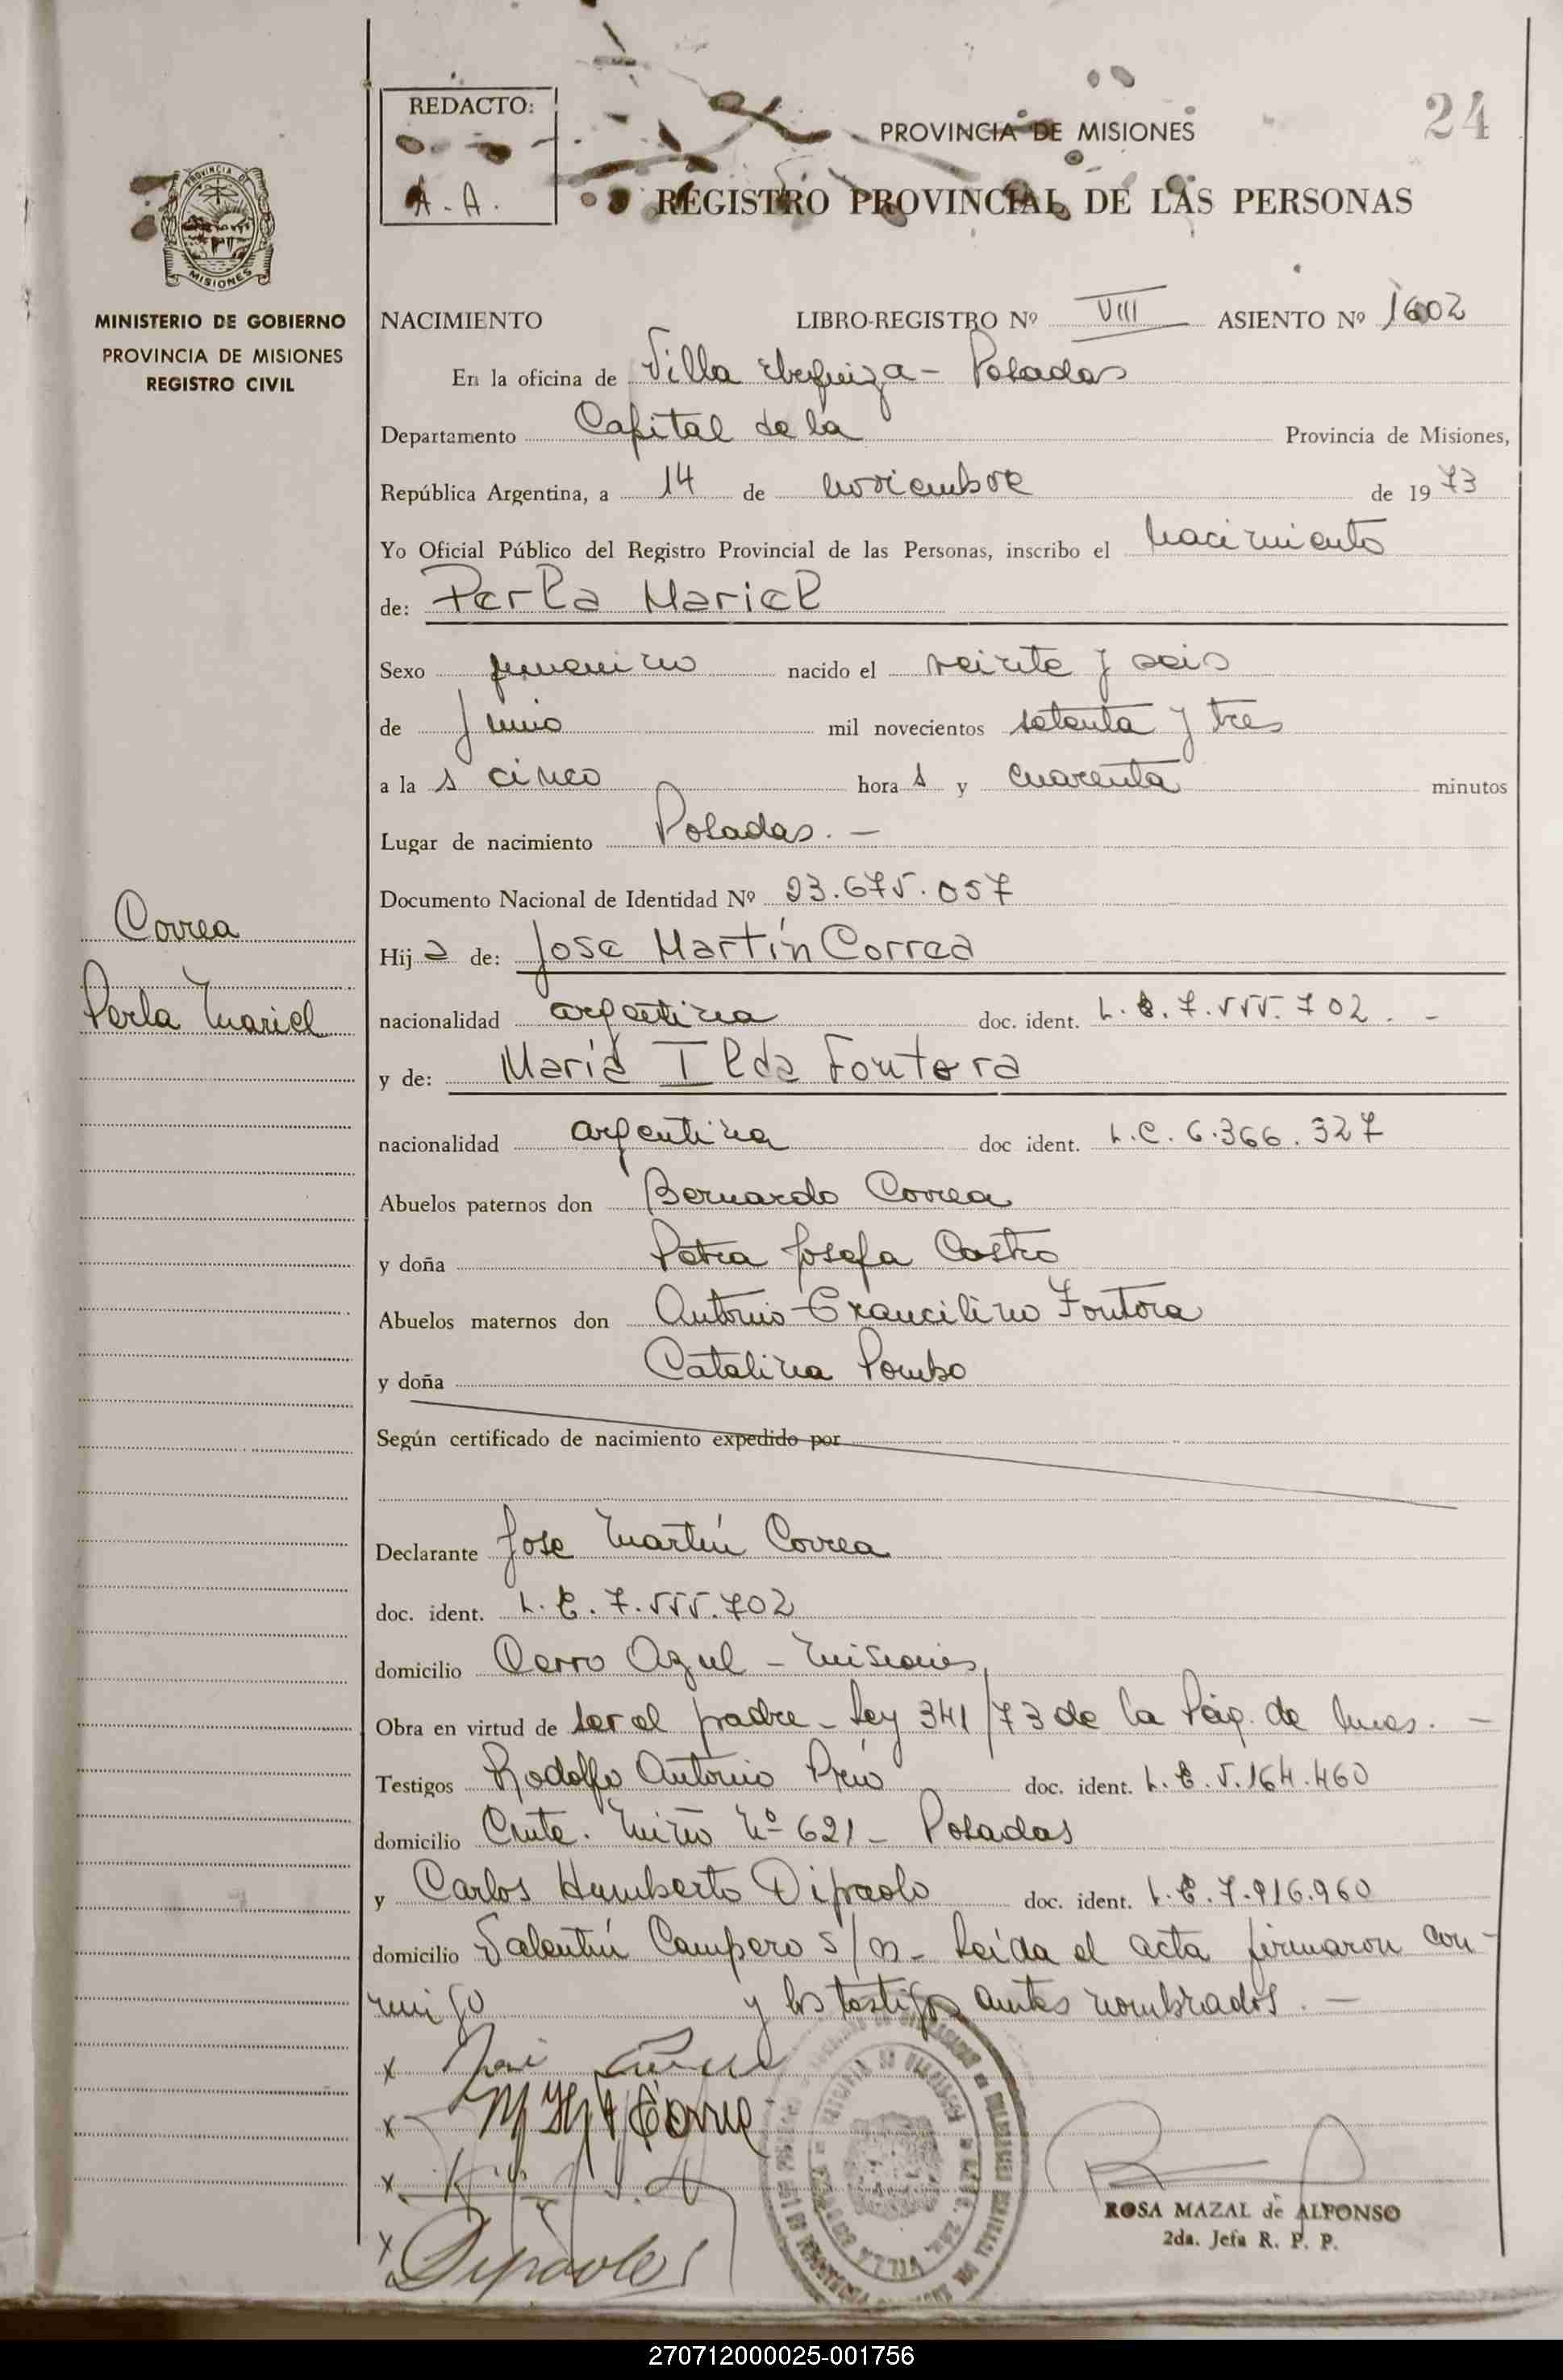 24
REDACTO:
A.A.
PROVINCIA DE MISIONES
REGISTRO PROVINCIAL DE LAS PERSONAS
PROVINCIA DE
MISIONES
MINISTERIO DE GOBIERNO
PROVINCIA DE MISIONES
REGISTRO CIVIL
NACIMIENTO LIBRO-REGISTRO Nº VIII ASIENTO Nº 1602
En la oficina de Villa - Posadas
Departamento Capital de la Provincia de Misiones,
República Argentina, a 14 de noviembre de 1973
Yo Oficial Público del Registro Provincial de las Personas, inscribo el nacimiento
de: Perla Mariel
Sexo femenino nacido el veinte y seis
de Junio mil novecientos setenta y tres
a la s cinco hora s y cuarenta minutos
Lugar de nacimiento Posadas. -
Documento Nacional de Identidad Nº 23.675.057
Correa
Perla Mariel
Hij a de: Jose Martín Correa
nacionalidad argentina doc. ident. L.E. 7.555.702. -
y de: María Ilda Fontora
nacionalidad argentina doc ident. L.C. 6.366.327
Abuelos paternos don Bernardo Correa
y doña Petra Josefa Castro
Abuelos maternos don Antonio Fontora
y doña Catalina Pombo
Según certificado de nacimiento expedido por
Declarante Jose Martín Correa
doc. ident. L.E. 7.555.702
domicilio Cerro Azul - Misiones,
Obra en virtud de ser el padre - Ley 341/73 de la Pág. de Mnes. -
Testigos Rodolfo Antonio doc. ident. L.E. 5.164.460
domicilio Cnte. Miño Nº 621 - Posadas
y Carlos Humberto Dipaolo doc. ident. L.E. 7.916.960
domicilio Valentín Campero s/n - Leída el acta firmaron con-
migo y los testigos antes nombrados. -
x
x
x
x
ROSA MAZAL de ALFONSO
2da. Jefa R. P. P.
270712000025-001756